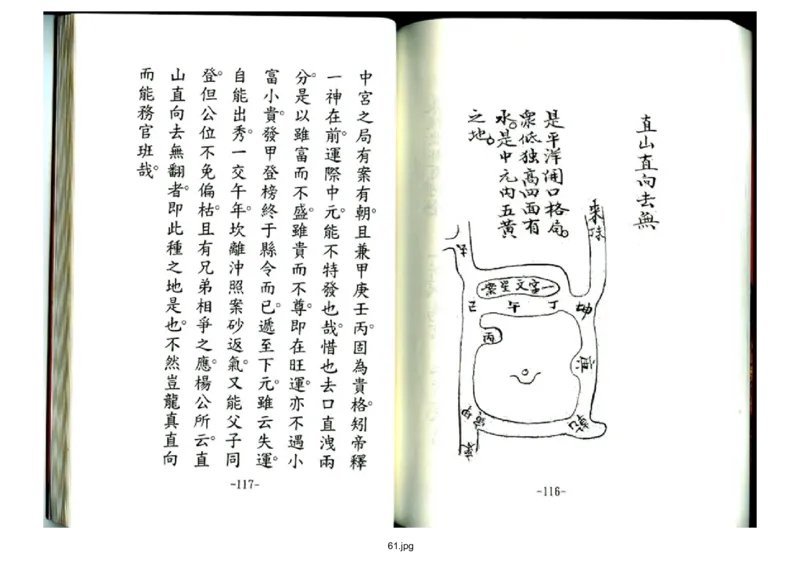 直山直向去無
是平洋開口格局。
眾低独高四面有
水。是中元內五黃
之地。
來脉
去
一字文星案
巳
午
丁
坤
丙
庚
乾
甲
-116-
中宮之局有案有朝。且兼甲庚壬丙。固為貴格。矧帝釋
一神在前。運際中元。能不特發也哉。惜也去口直洩兩
分。是以雖富而不盛。雖貴而不尊。即在旺運。亦不遇小
富小貴。發甲登榜終于縣令而已。遞至下元。雖云失運。
自能出秀。一交午年。坎離沖照案砂返氣。又能父子同
登。但公位不免偏枯。且有兄弟相爭之應。楊公所云。直
山直向去無翻者。即此種之地是也。不然豈龍真直向
而能務官班哉。
-117-
61.jpg